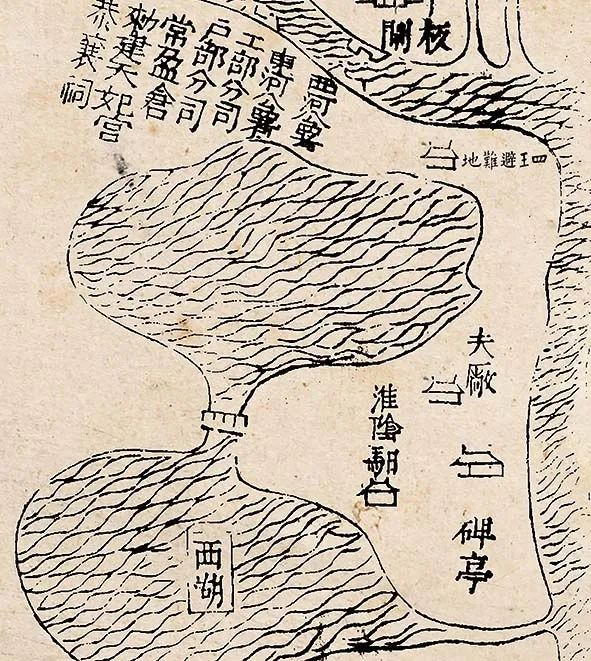 板閘
西河公署
東河公署
工部分司
户部分司
常盈倉
勑建天妃宮
恭襄祠
四王避難地
夫廠
淮陰馹
碑亭
西湖